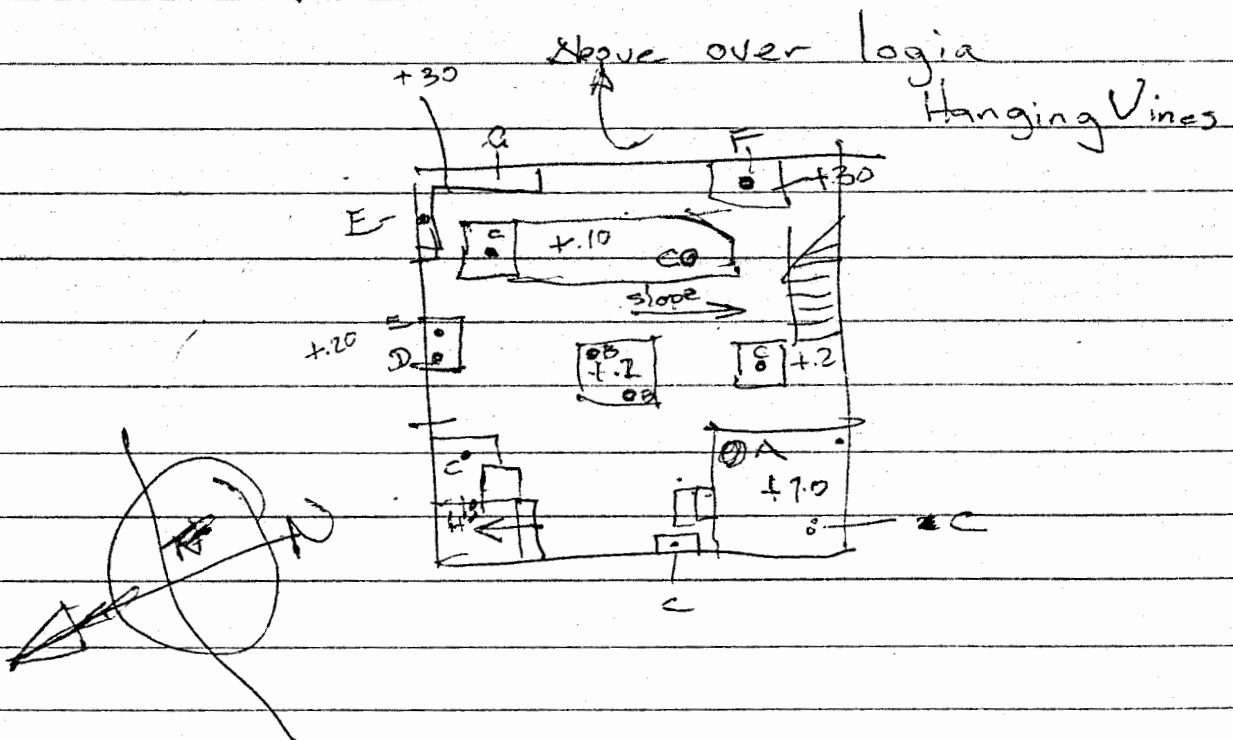 Above over logia
+30
Hanging Vines
G
F
+30
E
C
+.10
C
slope
+.20
E
D
B
+.1
B
C
+.2
C
A
+1.0
C
H
N
C